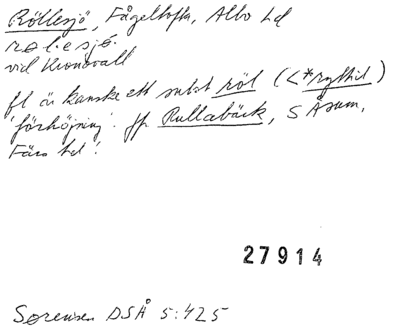 Röllesjö, Fågeltofta, Albo hd
rølesjø.
vid Kronovall
fl är kanske ett subst röl (<*ryðhil)
'förhöjning'. jfr Rullabäck, S Åsum,
Färs hd!
27914
Sørensen DSÅ 5:425